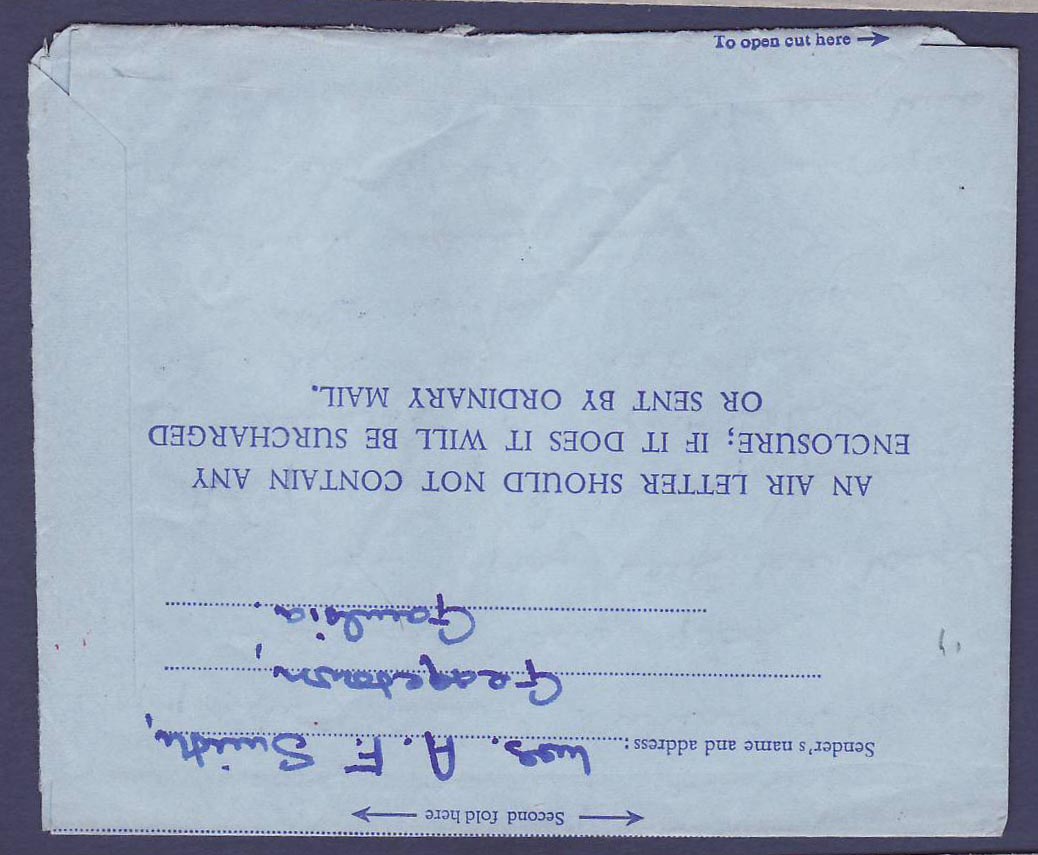 To open cut here
Second fold here
Sender's name and address: Mrs. A. F. Smith,
Georgetown,
Gambia.
AN AIR LETTER SHOULD NOT CONTAIN ANY
ENCLOSURE; IF IT DOES IT WILL BE SURCHARGED
OR SENT BY ORDINARY MAIL.